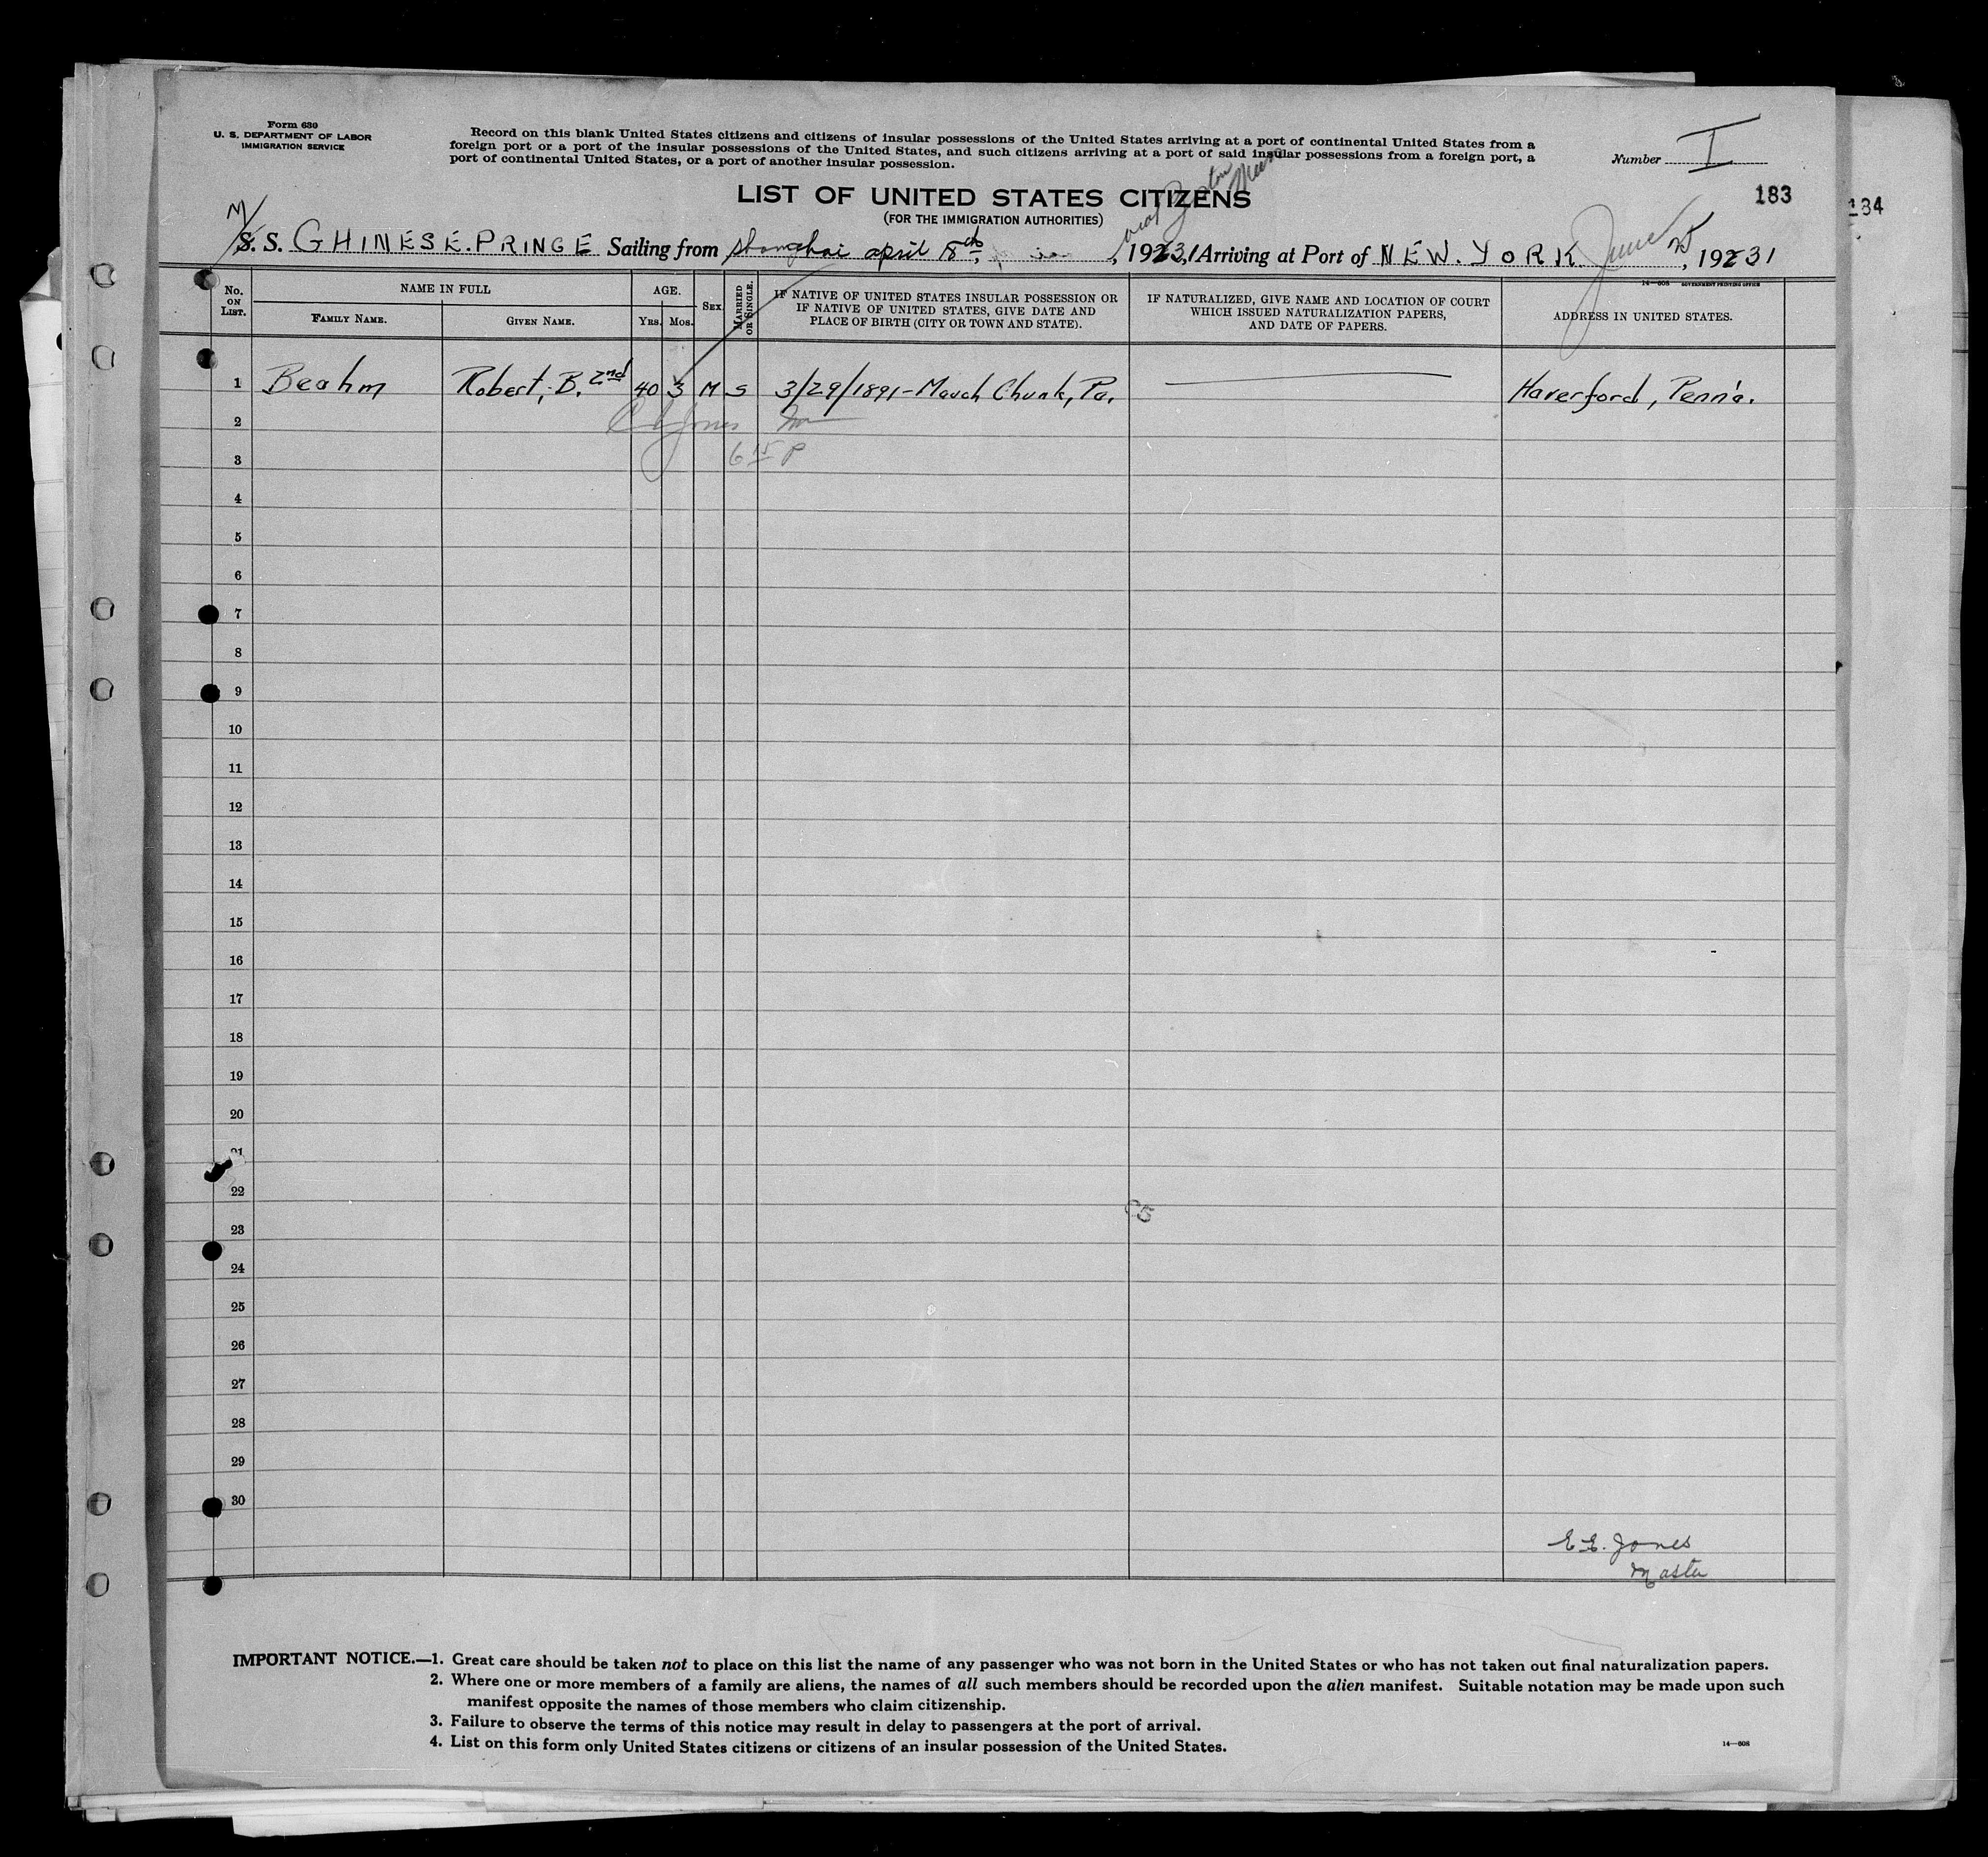 Form 630
U. S. DEPARTMENT OF LABOR
IMMIGRATION SERVICE
Record on this blank United States citizens and citizens of insular possessions of the United States arriving at a port of continental United States from a
foreign port or a port of the insular possessions of the United States, and such citizens arriving at a port of said insular possessions from a foreign port, a
port of continental United States, or a port of another insular possession.
Number I
183
184
LIST OF UNITED STATES CITIZENS
(FOR THE IMMIGRATION AUTHORITIES)
via Boston Mass
M/
S. S. CHINESE. PRINCE Sailing from Shanghai april 8th, 1931 Arriving at Port of NEW. YORK. June 25, 1931
14—608 GOVERNMENT PRINTING OFFICE
No. ON LIST.
NAME IN FULL
FAMILY NAME.
GIVEN NAME.
AGE.
YRS. MOS.
SEX
MARRIED OR SINGLE.
IF NATIVE OF UNITED STATES INSULAR POSSESSION OR
IF NATIVE OF UNITED STATES, GIVE DATE AND
PLACE OF BIRTH (CITY OR TOWN AND STATE).
IF NATURALIZED, GIVE NAME AND LOCATION OF COURT
WHICH ISSUED NATURALIZATION PAPERS,
AND DATE OF PAPERS.
ADDRESS IN UNITED STATES.
1 Beahm Robert, B. 2nd 40 3 M S 3/29/1891 - Mauch Chunk, Pa. Haverford, Penn'a.
2 Jones
3 6 15 P
4
5
6
7
8
9
10
11
12
13
14
15
16
17
18
19
20
21
22
23
24
25
26
27
28
29
30
E E. Jones
Master
IMPORTANT NOTICE.—1. Great care should be taken not to place on this list the name of any passenger who was not born in the United States or who has not taken out final naturalization papers.
2. Where one or more members of a family are aliens, the names of all such members should be recorded upon the alien manifest. Suitable notation may be made upon such
manifest opposite the names of those members who claim citizenship.
3. Failure to observe the terms of this notice may result in delay to passengers at the port of arrival.
4. List on this form only United States citizens or citizens of an insular possession of the United States.
14—608